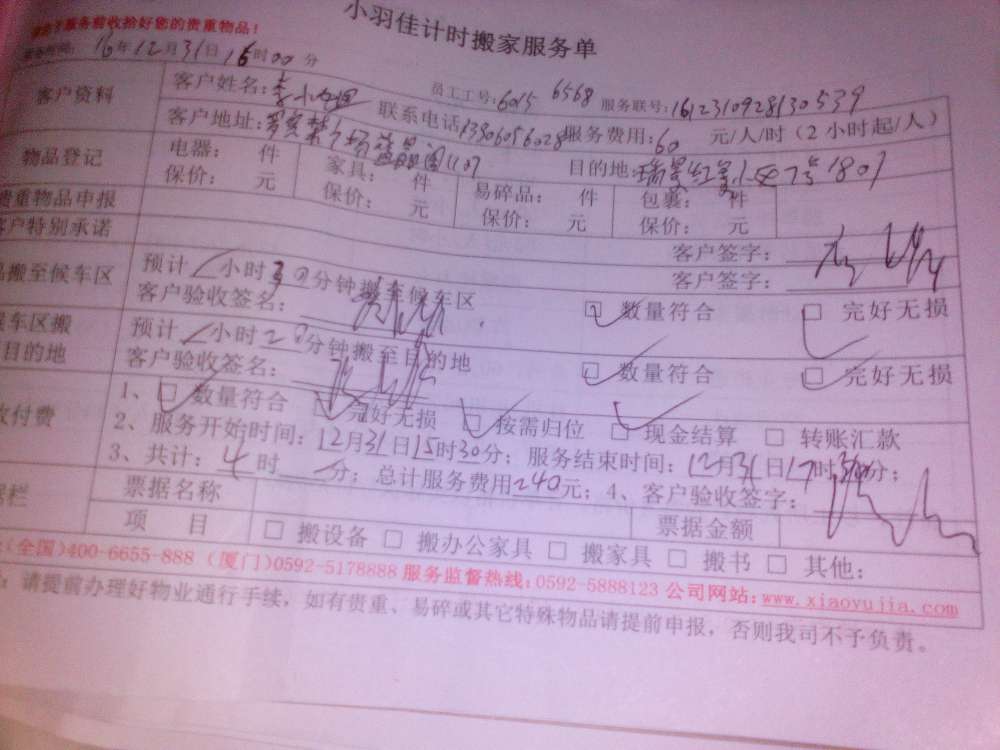 小羽佳计时搬家服务单
服务前收拾好您的贵重物品！
16年12月31日15时00分
员工工号：6015 6568 服务联号：1612310928130539
客户资料 客户姓名：李小 联系电话：13306056028 服务费用：60 元/人/时（2小时起/人）
客户地址： 1107 目的地：瑞景 1801
物品登记 电器： 件 家具： 件 易碎品： 件 包裹： 件
保价： 元 保价： 元 保价： 元 保价： 元
贵重物品申报 客户签字：
客户特别承诺 客户签字：
搬至候车区 预计 小时30分钟搬至候车区
客户验收签名： □ 数量符合 □ 完好无损
候车区搬 预计 小时20分钟搬至目的地
目的地 客户验收签名： □ 数量符合 □ 完好无损
付费 1、□ 数量符合 □ 完好无损 □ 按需归位 □ 现金结算 □ 转账汇款
2、服务开始时间：12月31日15时30分；服务结束时间：12月31日17时30分；
3、共计：4时 分；总计服务费用240元；4、客户验收签字：
栏 票据名称 票据金额
项 目 □ 搬设备 □ 搬办公家具 □ 搬家具 □ 搬书 □ 其他：
(全国)400-6655-888 (厦门)0592-5178888 服务监督热线：0592-5888123 公司网站：www.xiaoyujia.com
：请提前办理好物业通行手续，如有贵重、易碎或其它特殊物品请提前申报，否则我司不予负责。